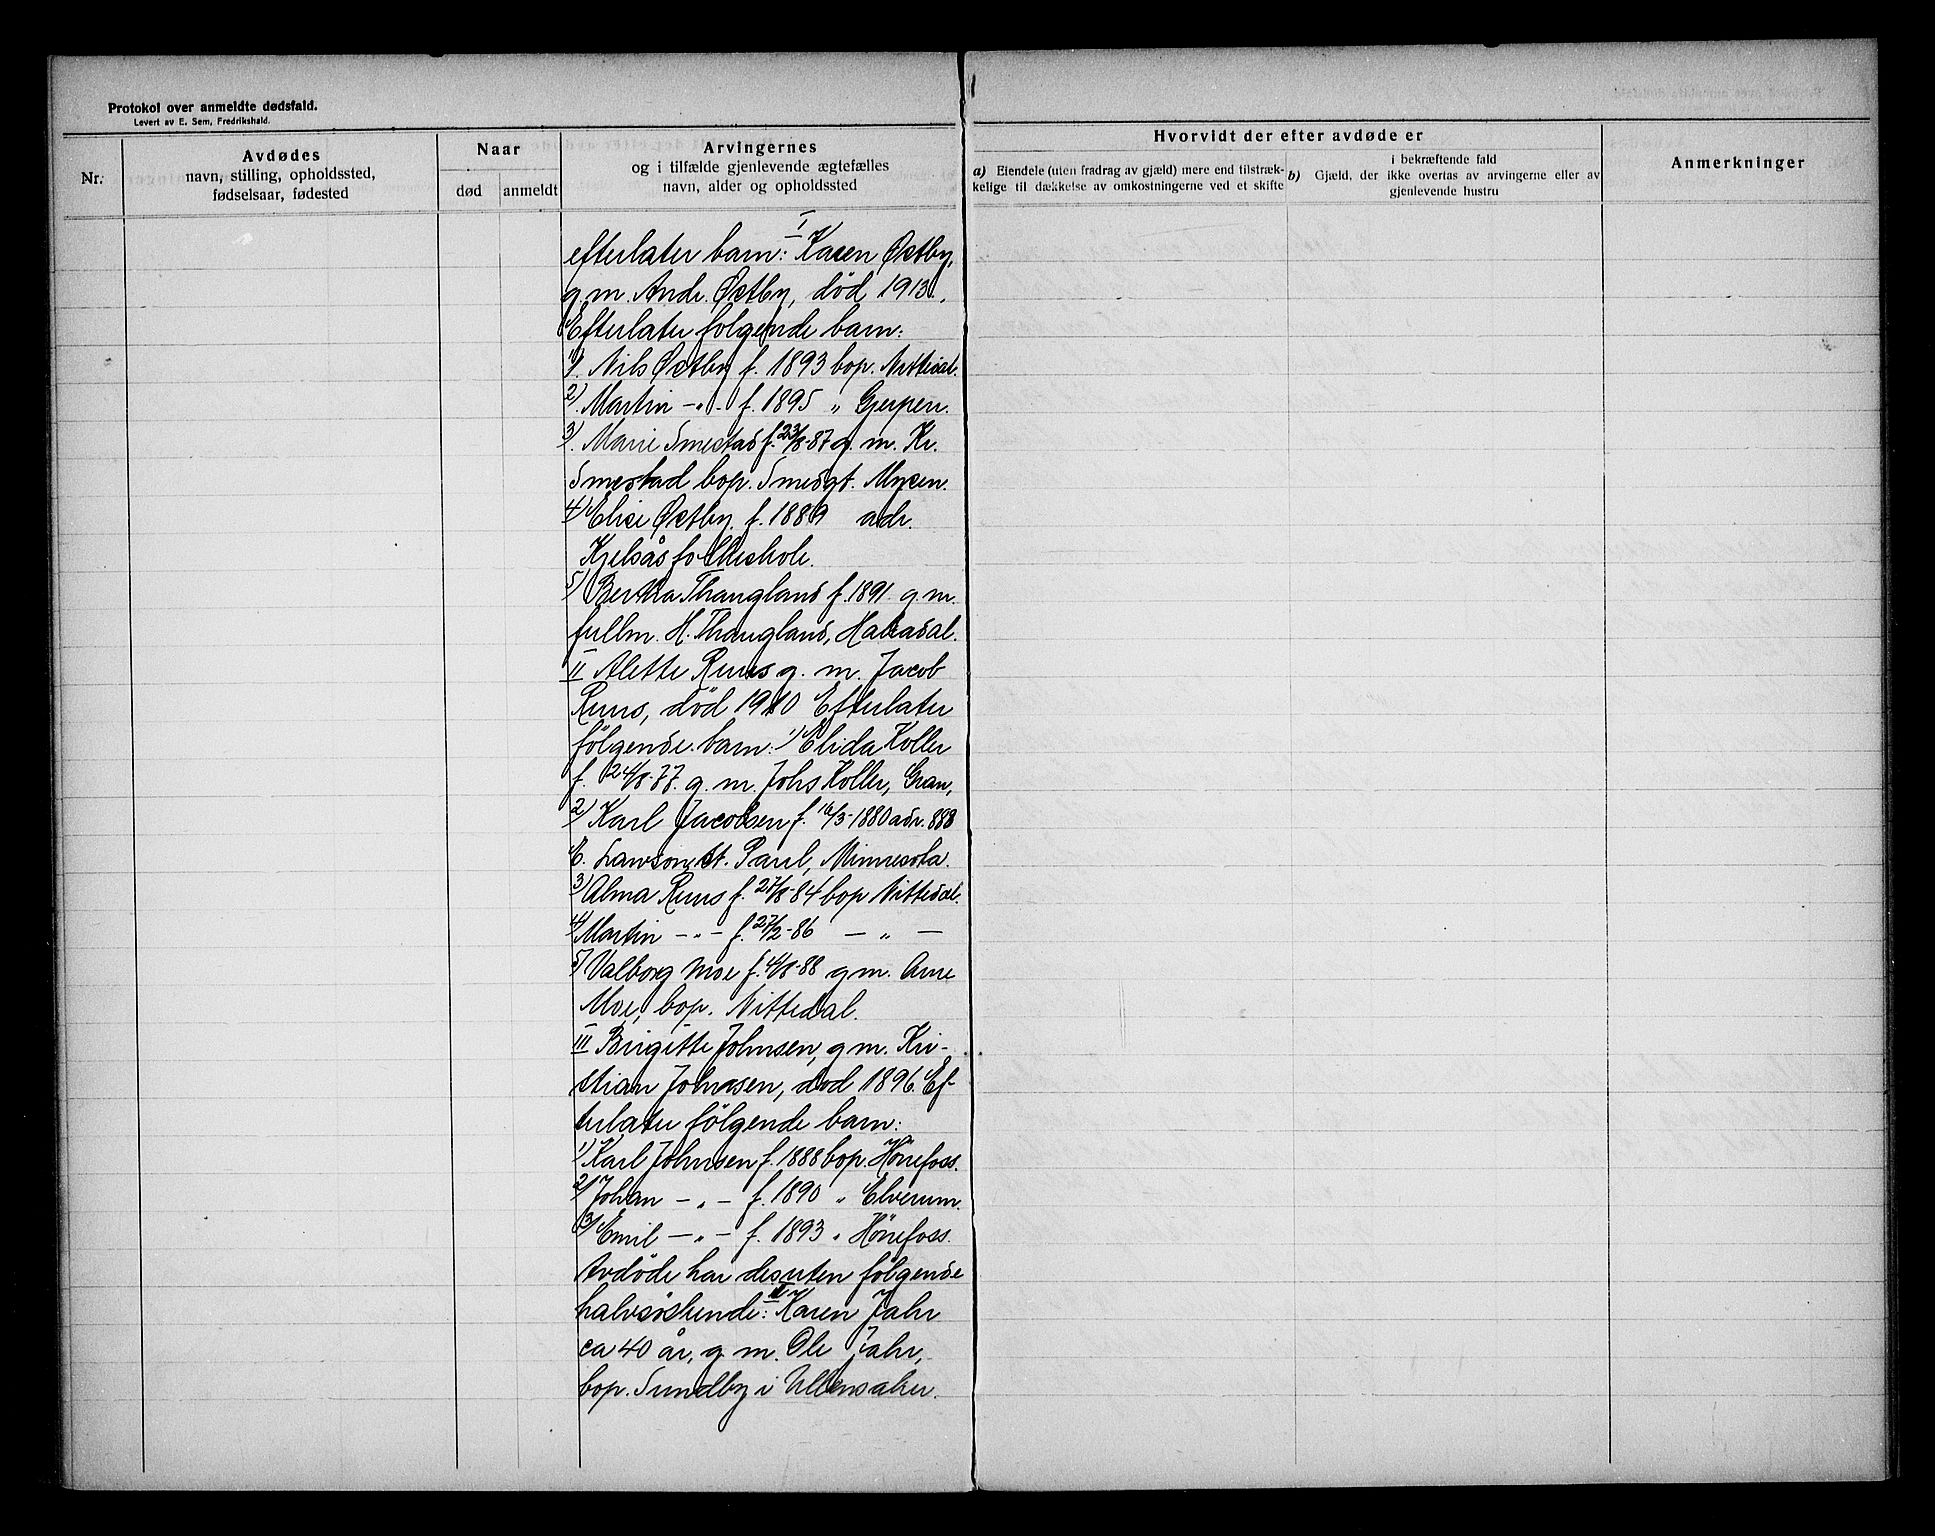 Protokol over anmeldte dødsfald.
Levert av E. Sem, Fredrikshald.
Nr.
Avdødes
navn, stilling, opholdssted,
fødselsaar, fødested
Naar
død
anmeldt
Arvingernes
og i tilfælde gjenlevende ægtefælles
navn, alder og opholdssted
Hvorvidt der efter avdøde er
a) Eiendele (uten fradrag av gjæld) mere end tilstræk-
kelige til dækkelse av omkostningerne ved et skifte
i bekræftende fald
b) Gjæld, der ikke overtas av arvingerne eller av
gjenlevende hustru
Anmerkninger
efterlater barn: I Karen Østby,
g. m. Andr. Østby, død 1913.
Efterlater følgende barn:
1). Nils Østby f. 1893 bop. Nittedal.
2). Martin -"- f. 1895 " Gjerpen.
3). Marie Smestad f. 23/8-87 g. m. Kr.
Smestad bop. Smedgt. Mysen.
4) Elise Østby. f. 1889 adr.
Kjelsås folkeskole.
5) Bertha Thaugland f. 1891. g. m.
fullm. H. Thaugland, Hakadal.
II Alette Ruus g. m. Jacob
Ruus, død 1910 Efterlater
følgende barn: 1) Elida Koller
f. 24/8-77. g. m. Johs Koller, Gran,
2) Karl Jacobsen f. 16/3-1880 adr. 888
E. Lawson, St. Paul, Minnesota.
3) Alma Ruus f. 27/8-84 bop Nittedal.
4) Martin -"- f. 27/2-86 — " —
5) Valborg Moe f. 4/8-88 g m. Arne
Moe, bop. Nittedal.
III Birgitte Johnsen, g m. Kri-
stian Johnsen, død 1896. Ef-
terlater følgende barn:
1) Karl Johnsen f. 1888 bop. Hönefoss.
2) Johan — " — f. 1890 " Elverum.
3) Emil — " — f. 1893 " Hönefoss.
Avdöde har desuten følgende
halvsöskende: Karen Jahr
ca 40 år, g m. Ole Jahr,
bop. Sundby i Ullensaker.